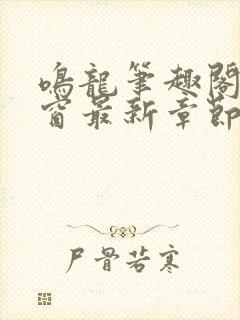 鳴龍筆趣閣
窗最新章節
尸骨若寒